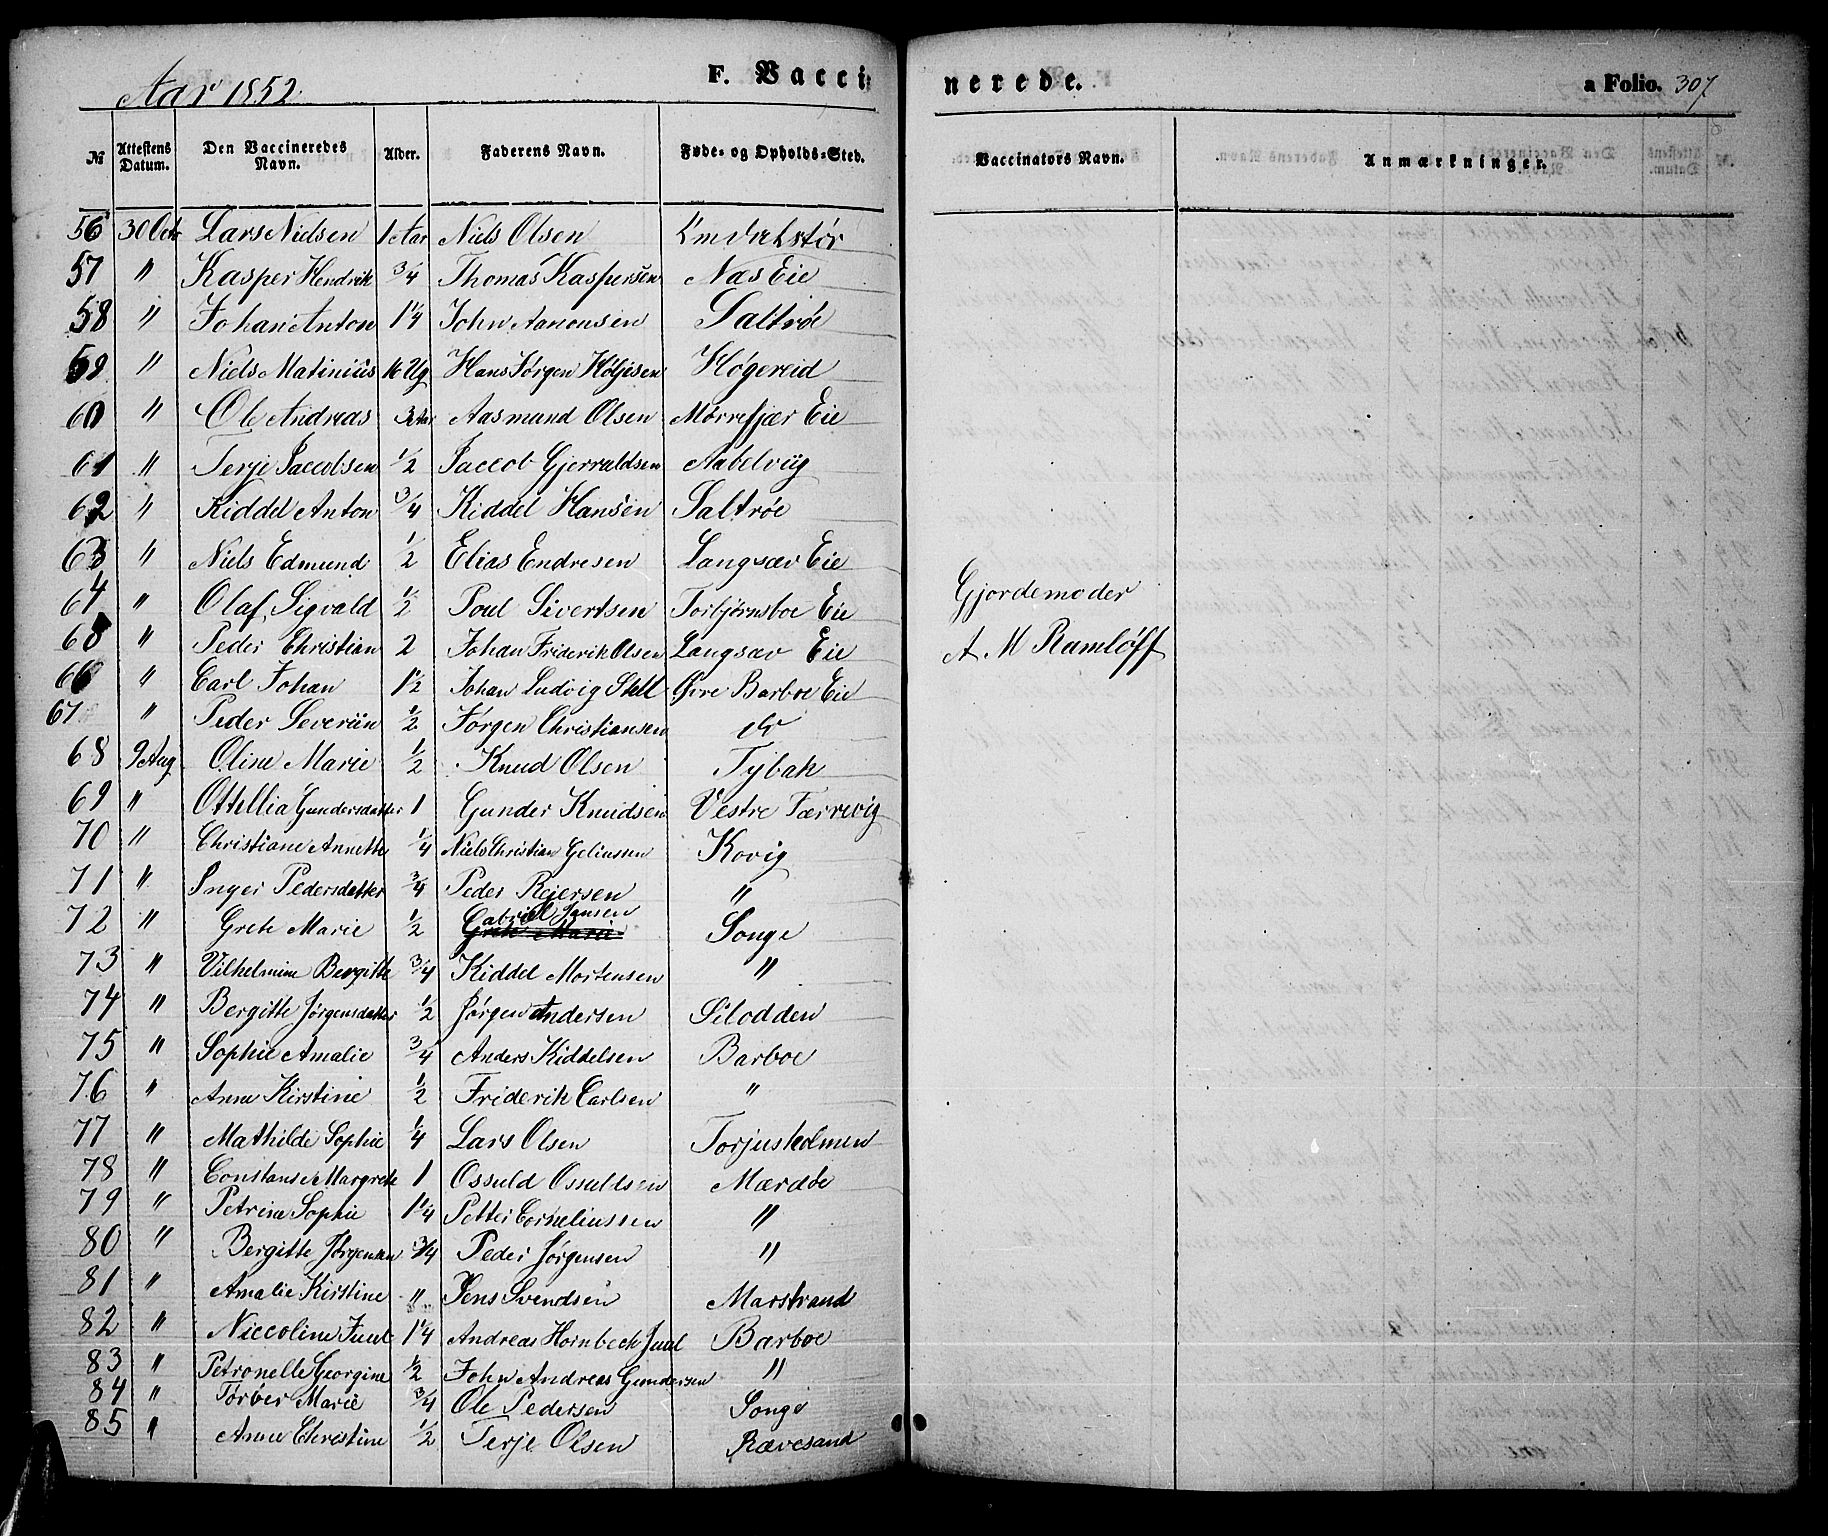 Aar 1852. F. Vacci- nerede. a Folio. 307
№ Attestens Datum. Den Vaccineredes Navn. Alder. Faderens Navn. Føde- og Opholds-Sted. Vaccinators Navn. Anmærkninger.
56 30 Octr Lars Nielsen 1 Aar Niels Olsen
57 " Kasper Hendrik 3/4 Thomas Kaspersen Næs Eie
58 " Johan Anton 1 1/4 John Aanonsen Saltrøe
59 " Niels Matinius 16 Ug Hans Jørgen Høljesen Høgereid
60 " Ole Andreas 3 Aar Aasmund Olsen Mørrefjær Eie
61 " Terje Jaccobsen 1/2 Jaccob Gjerraldsen Aabelviig
62 " Kiddel Anton 3/4 Kiddel Hansen Saltrøe
63 " Niels Edmund 1/2 Elias Endresen Langsæv Eie
64 " Olaf Sigvald 1/2 Poul Sivertsen Torbjørnsboe Eie
Gjordemoder
65 " Peder Christian 2 Johan Friderik Olsen Langsæv Eie
A. M Ramløff
66 " Carl Johan 1 1/2 Johan Ludvig Stell Øvre Barboe Eie
67 " Peder Severiin 1/2 Jørgen Christiansen do
68 9 Aug Oline Marie 1/2 Knud Olsen Tybak
69 " Ottellia Gundersdatter 1 Gunder Knudsen Vestre Tærrevig
70 " Christiane Annette 1/4 Niels Christian Geliussen Kovig
71 " Inger Pedersdatter 3/4 Peder Reiersen "
72 " Grete Marie 1/2 Gabriel Jansen Songe
Grete Marie
73 " Vilhelmine Bergitte 3/4 Kiddel Mortensen "
74 " Bergitte Jørgensdatter 1/2 Jørgen Andersen Silodden
75 " Sophie Amalie 3/4 Anders Kiddelsen Barboe
76 " Anne Kirstine 1/2 Friderik Carlsen "
77 " Mathilde Sophie 1/4 Lars Olsen Torjusholmen
78 " Constanse Margrete 1 Ossuld Ossuldsen Mærdøe
79 " Petrine Sophie 1 1/4 Petter Corneliussen "
80 " Bergitte Jørgensen 3/4 Peder Jørgensen "
81 " Amalie Kirstine " Jens Svendsen Marstrand
82 " Niccoline Juul 1 1/4 Andreas Hornbech Juul Barboe
83 " Petronelle Georgine 1/2 John Andreas Gundersen "
84 " Torber Marie 3/4 Ole Pedersen Songe
85 " Anne Christine 1/2 Terje Olsen Rævesand